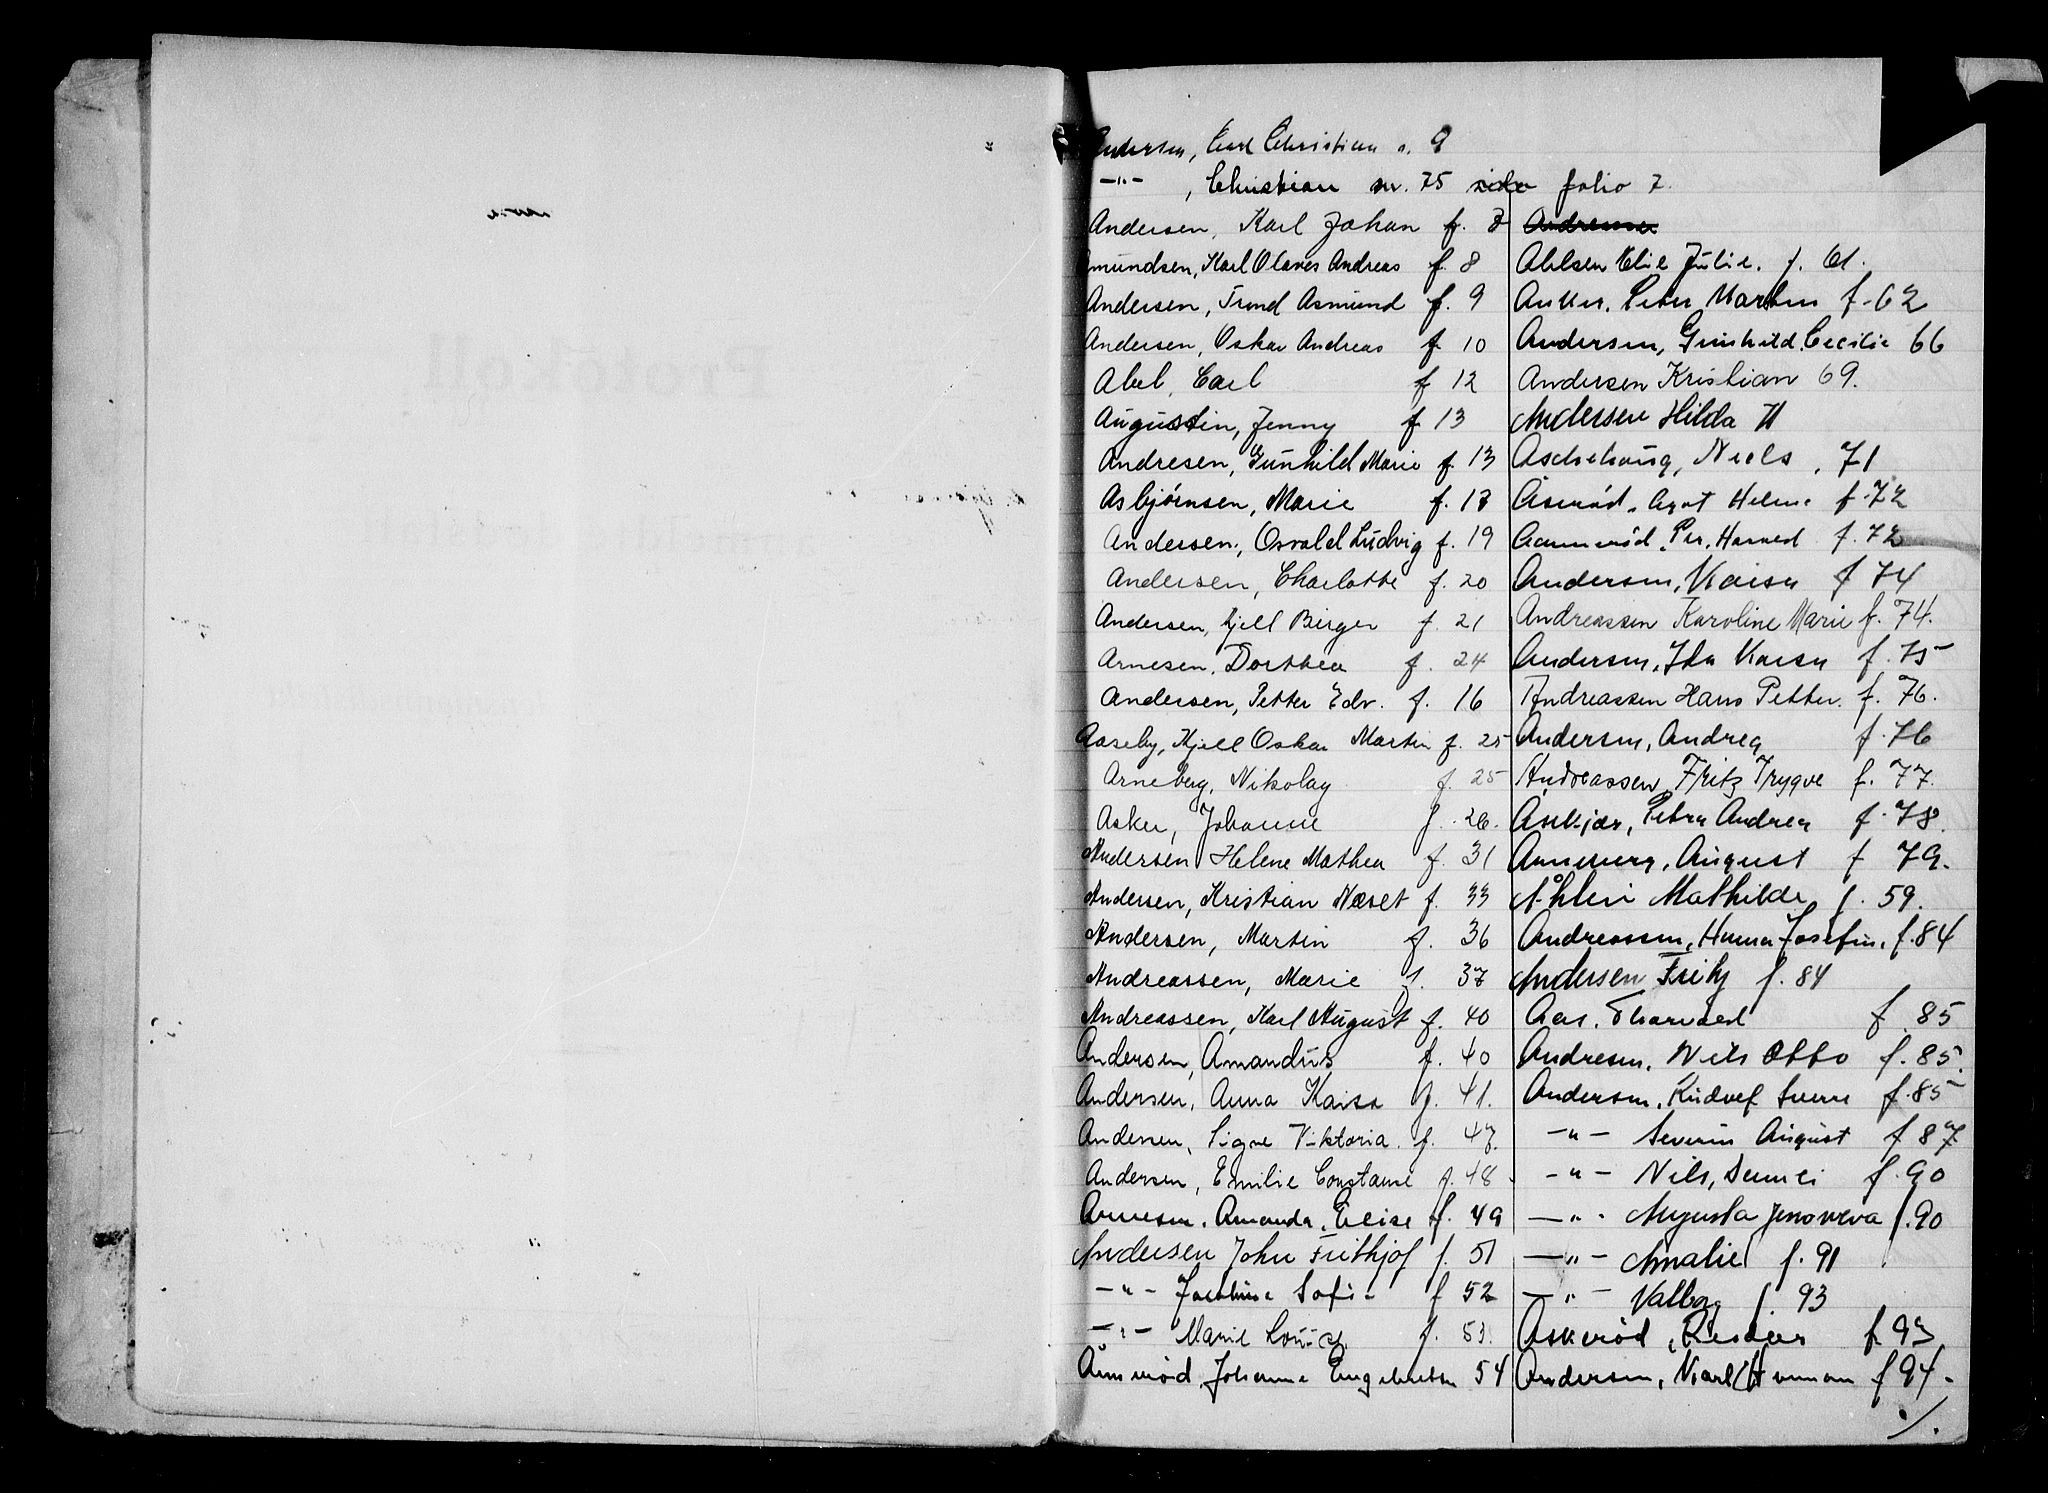 Andersen, Carl Christian s. 9
—"— , Christian nr. 75 side folio 7.
Andersen, Karl Johan f. 8
Amundsen, Karl Olaves Andreas f. 8
Andersen, Trond Asmund f. 9
Andersen, Oskar Andreas f 10
Abel, Carl f 12
Augustin, Jenny f 13
Andresen, Gunhild Marie f. 13
Asbjørnsen, Marie f. 17
Andersen, Osvald Ludvig f. 19
Andersen, Charlotte f. 20
Andersen, Kjell Birger f. 21
Arnesen, Dorthea f. 24
Andersen, Petter Edv. f. 16
Aaseby, Kjell Oskar Martin f. 25
Arneberg, Nikolay f. 25
Asker, Johanne f. 26.
Andersen Helene Mathea f. 31
Andersen, Kristian Næset f. 33
Andersen, Martin f. 36
Andreassen, Marie f. 37
Andreassen, Karl August f. 40
Andersen, Amandus f. 40
Andersen, Anna Kaisa f. 41.
Andersen, Signe Viktoria f. 47.
Andersen, Emilie Constanse f. 48
Arnesen, Amanda, Elise f. 49
Andersen John Frithjof f. 51
—"— Sofie f 52
—"— Marie Louise f. 53.
Åmsrød, Johanne Engebretsen 54
Andresen
Ahlsen Elie Julie. f. 61.
Anker, Peter Martin f. 62
Andersen, Gunhild Cecilie 66
Andersen Kristian 69.
Andersen Hilda 71
Aschehoug, Niels, 71
Åsmrød, Agot Helene f. 72
Aamsrød, Per, Harned f. 72
Andersen, Kaisa f 74
Andreassen Karoline Marie f. 74.
Andersen, Ida Kaisa f. 75
Andreassen Hans Petter. f. 76.
Andersen, Andrea f. 76
Andreassen, Fritz Trygve f. 77.
Askjær, Petra Andrea f. 78.
Anneberg, August f 79.
Åhlin Mathilde f. 59.
Andreassen, Hanna Josefine. f. 84
Andersen Fritz f. 84
Aas, Thorvald f 85
Andresen, Nils Otto f. 85.
Andersen, Rudolf Sverre f. 85
—"— Severin August f 87
—"— Nils, f. 90
—"— Augusta Jenoveva f. 90
—"— Amalie f. 91
—"— Valborg f. 93
Askerød, Reidar f. 93
Andersen, Karl Herman f 94-
./.